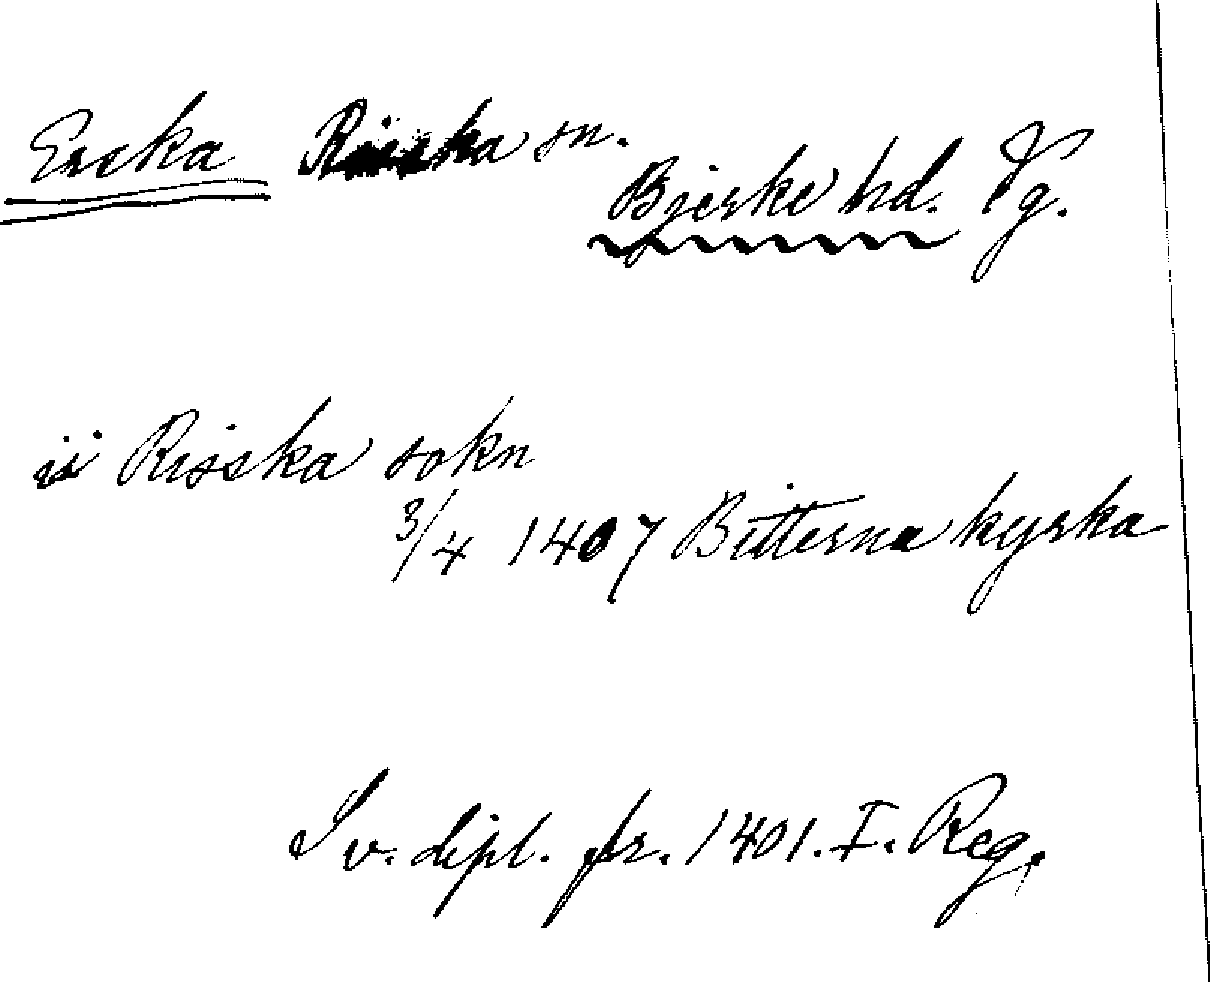 Ercka Risska sn.
Bjerke hd. Vg.
ii Risska sokn
3/4 1407 Bitterna kyrka
Sv. dipl. fr. 1401. I. Reg.